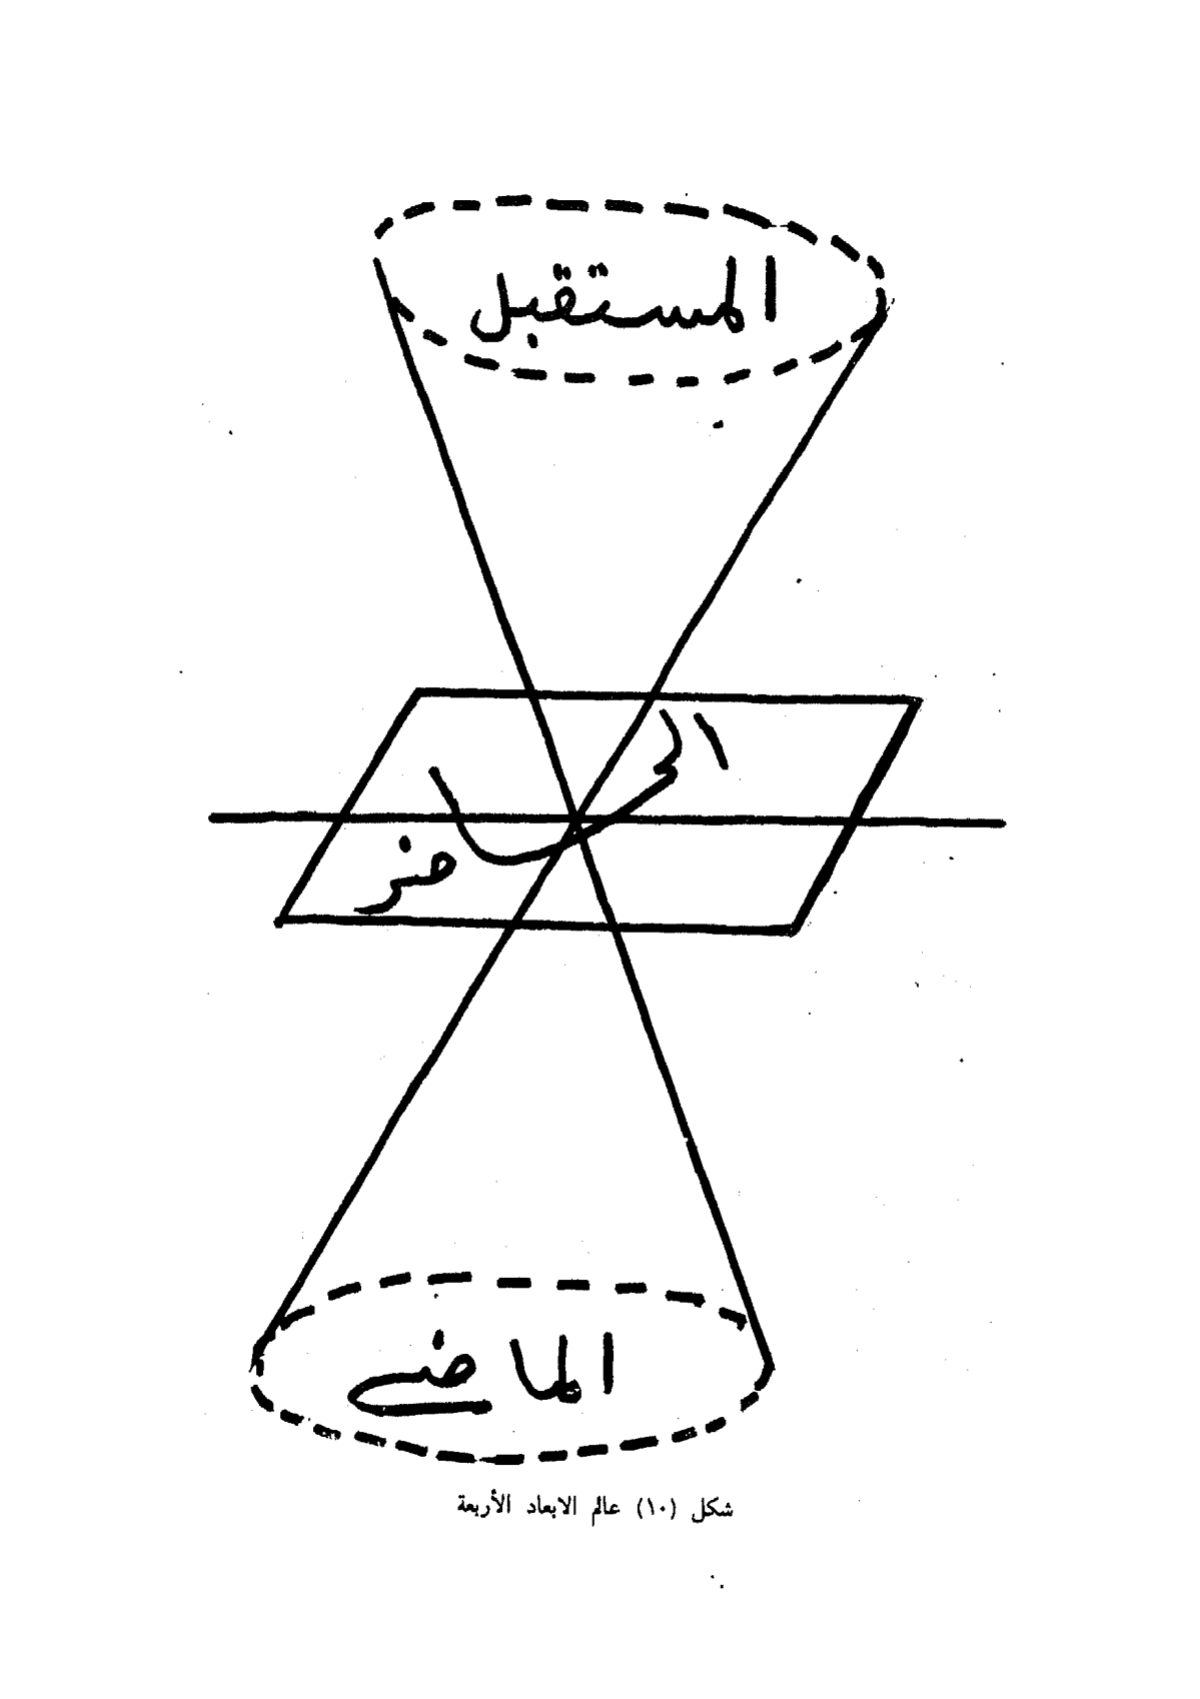 المستقبل
الحاضر
الماضي
شكل (١٠) عالم الابعاد الأربعة